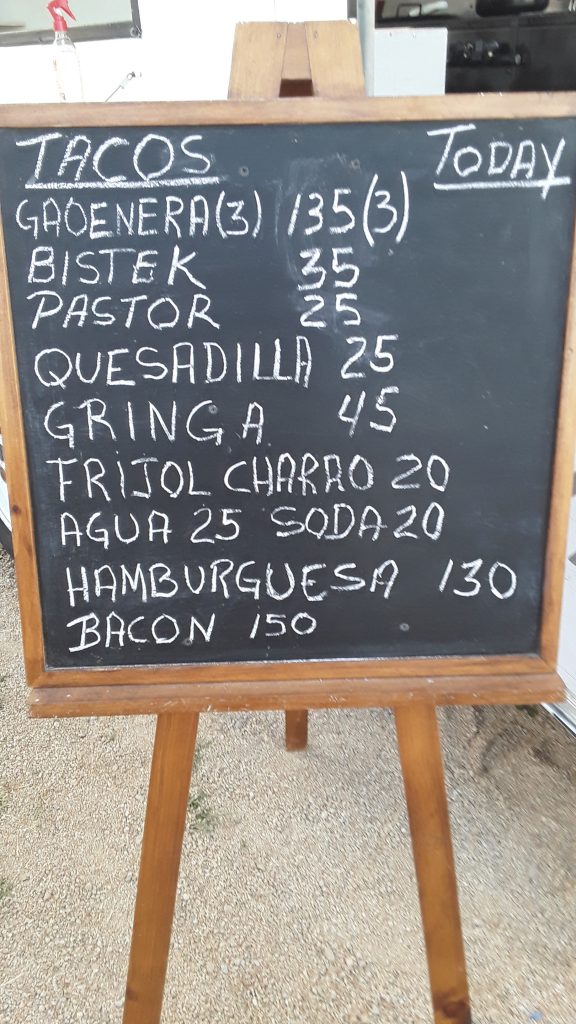 TACOS TODAY
GAOENERA(3) 135(3)
BISTEK 35
PASTOR 25
QUESADILLA 25
GRINGA 45
FRIJOL CHARRO 20
AGUA 25 SODA 20
HAMBURGUESA 130
BACON 150